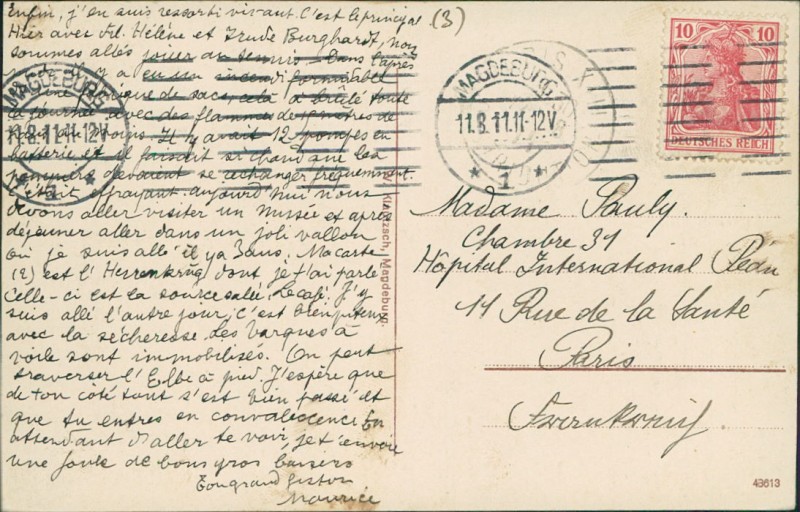 Enfin, j'en suis ressorti vivant. C'est le principal (3)
Hier avec Frl. Hélène et Trude Burghardt, nous
sommes allés jouer au tennis. Dans l'après
y a eu un incendi formidable
de sacs, celà a brûlé toute
la journée avec des flammes de mètres de
Il y avait 12 pompes en
batterie et il faisait si chaud que les
pompiers devaient se rechanger fréquemment.
C'était effrayant. aujourd'hui nous
devons aller visiter un musée et après
déjeuner aller dans un joli vallon
où je suis allé il y a 3 ans. Ma carte
(2) est l'Herrenkrug dont je t'ai parlé
Celle-ci est la source salée. Le café. J'y
suis allé l'autre jour, c'est bien piteux
avec la sécheresse. Les barques à
voile sont immobilisés. On peut
traverser l'Elbe à pied. J'espère que
de ton côté tout s'est bien passé et
que tu entres en convalescence. En
attendant d'aller te voir, je t'envoie
une foule de bons gros baisers
Ton grand fiston
Maurice
MAGDEBURG
11.8.11.11-12V
* 1 *
Magdeburg.
MAGDEBURG
11.8.11.11-12V
* 1 *
PARIS X
10 10
DEUTSCHES REICH
Madame Pauly.
Chambre 31
Hôpital International Péan
11 Rue de la Santé
Paris
Frankreich
43613